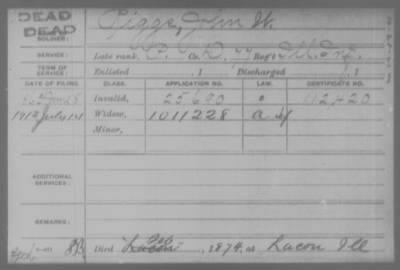 DEAD
DEAD
SOLDIER: Piggs, John W.
SERVICE: Late rank, P. Co. D, 77 Reg't Ill. Inf.
TERM OF SERVICE: Enlisted , 1 Discharged , 1
DATE OF FILING. CLASS. APPLICATION NO. LAW. CERTIFICATE NO.
Invalid, 25,690 112,420
1913 July 1st Widow, 1011228
Minor,
ADDITIONAL SERVICES:
REMARKS:
Died Lacon, 1874, at Lacon Ill